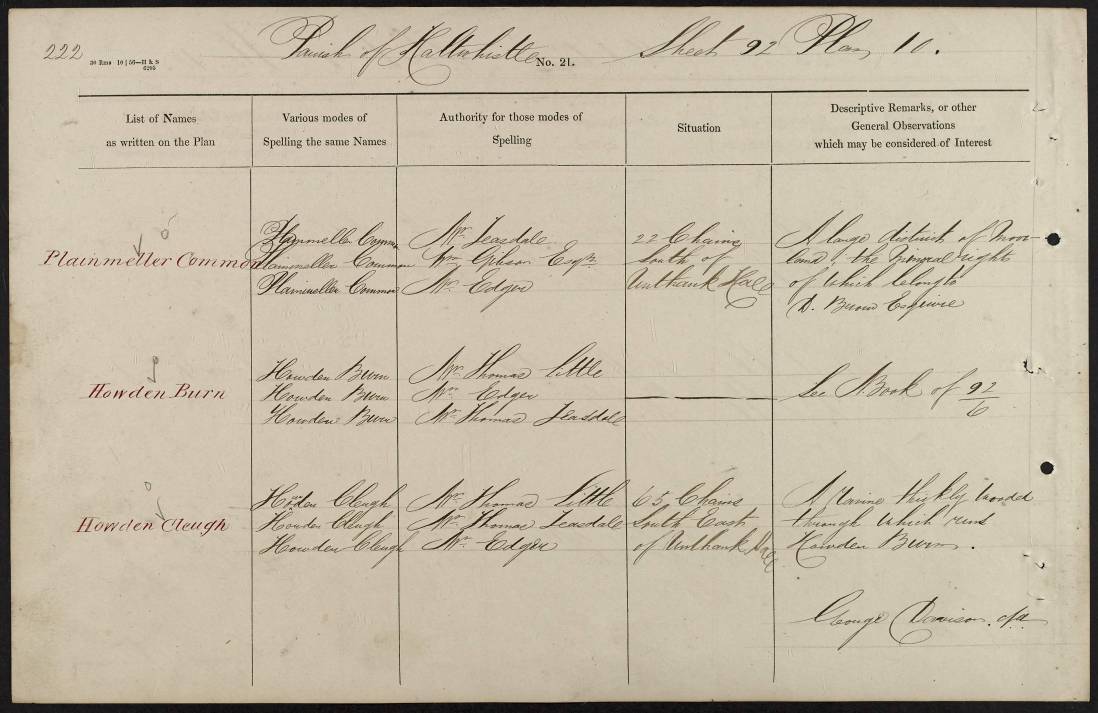 222
30 Rms 10 | 56—H & S
6205
Parish of Haltwhistle No. 21. Sheet 92 Plan 10.
List of Names
as written on the Plan
Various modes of
Spelling the same Names
Authority for those modes of
Spelling
Situation
Descriptive Remarks, or other
General Observations
which may be considered of Interest
Plainmeller Common
Plainmeller Common
Plainmeller Common
Plainmeller Common
Mr. Teasdale
Wm. Gibson Esqr.
Mr. Edger
22 Chains
South of
Unthank Hall
A large district of Moor-
land, the Manorial rights
of which belong to
D. Brown Esquire
Howden Burn
Howden Burn
Howden Burn
Howden Burn
Mr. Thomas Little
Mr. Edger
Mr. Thomas Teasdale
See N. Book of 92/6
Howden Cleugh
Howden Cleugh
Howden Cleugh
Howden Cleugh
Mr. Thomas Little
Mr. Thomas Teasdale
Mr. Edger
65 Chains
South East
of Unthank Hall
A Ravine thickly wooded
through which runs
Howden Burn.
George Davison. c/a